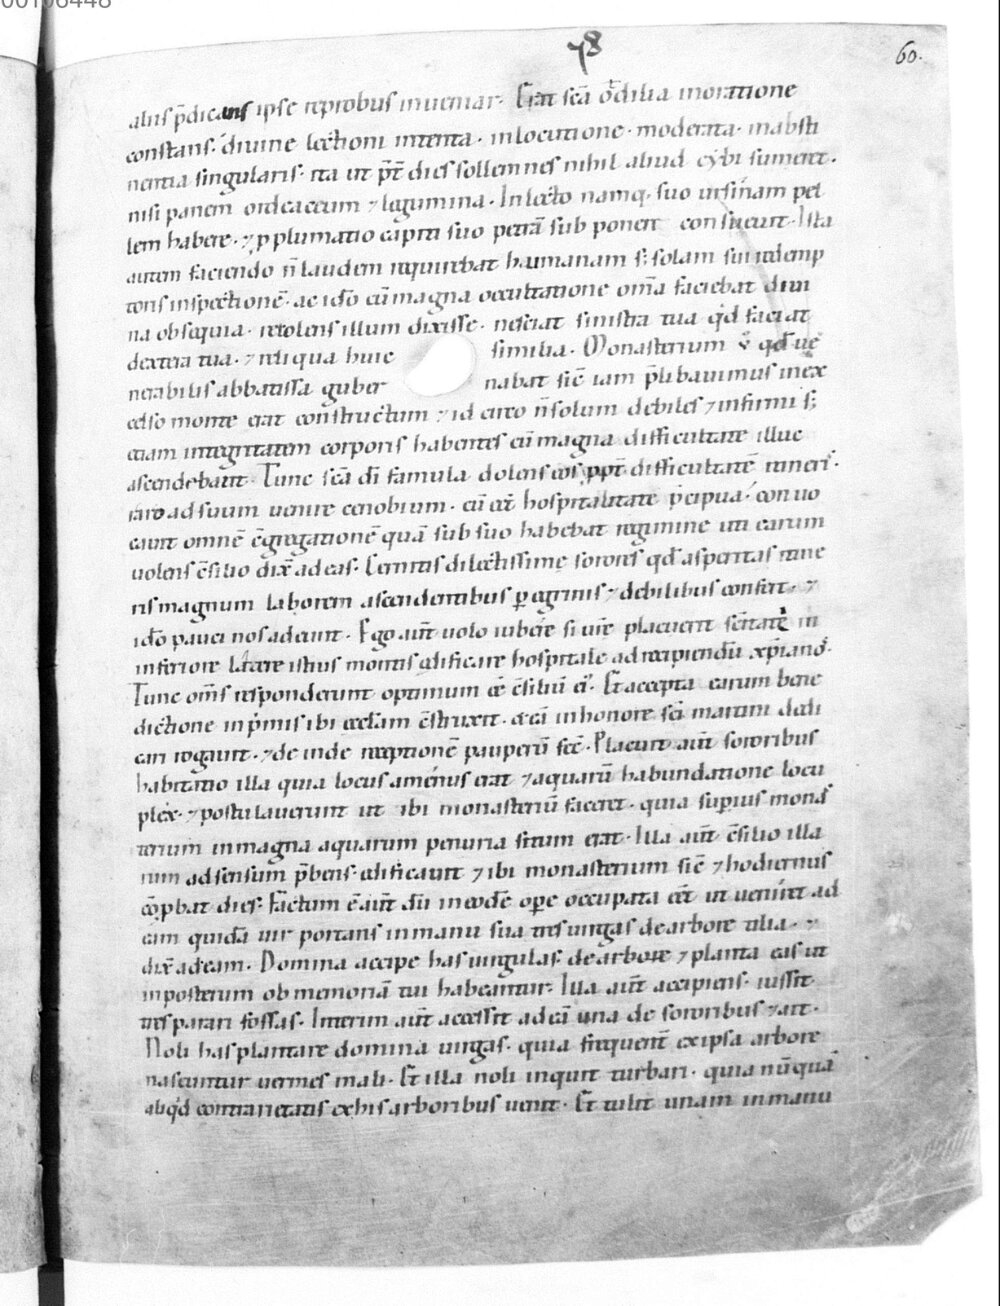 00106448
78
60.
aliis p̄dicans ipse reprobus inueniar. Erat sc̄a odilia in oratione
constans. diuine lectioni intenta. in locutione. moderata. in absti
nentia singularis. ita ut p̄t dies sollemnes nihil aliud cybi sumeret.
nisi panem ordeaceum ⁊ legumina. In lecto namq; suo ursinam pel
lem habere. ⁊ p plumatio capiti suo petrā sub ponere consueuit. Ista
autem faciendo n̄ laudem requirebat humanam s; solam sui redemp
toris inspectionē. ac ido cū magna occultatione om̄a faciebat diui
na obsequia. recolens illum dixisse. nesciat sinistra tua qd̄ faciat
dextera tua. ⁊ reliqua huic similia. Monasterium v̄ qd̄ ue
nerabilis abbatissa guber nabat sic̄ iam p̄libauimus in ex
celso monte erat constructum ⁊ id circo n̄ solum debiles ⁊ infirmi s;
etiam integritatem corporis habentes cū magna difficultate illuc
ascendebant. Tunc sc̄a dī famula dolens eos ppt̄ difficultatē itineris.
raro ad suum uenire cenobium. cū eēt hospitalitate p̄cipua. conuo
cauit omnē c̄gregationē quā sub suo habebat regimine uti earum
uolens c̄silio dix̄ ad eas. Cernitis dilectissime sorores qd̄ asperitas itine
ris magnum laborem ascendentibus peregrinis ⁊ debilibus confert. ⁊
ido pauci nos adeunt. Ego aut̄ uolo iubere si ur̄e placuerit sc̄itate in
inferiore latere istius montis ędificare hospitale ad recipiendū xp̄ianos.
Tunc om̄s responderunt optimum eē c̄siliū ei. Et accepta earum bene
dictione in p̄mis ibi eccl̄am c̄struxit. ⁊ eā in honore sc̄i martini dedi
cari rogauit. ⁊ de inde receptionē pauperū fec̄. Placuit aut̄ sororibus
habitatio illa quia locus amenus erat ⁊ aquarū habundatione locu
plex. ⁊ postulauerunt ut ibi monasteriū faceret. quia superius monas
terium in magna aquarum penuria situm erat. Illa aut̄ c̄silio illa
rum adsensum p̄bens. ędificauit ⁊ ibi monasterium sic̄ ⁊ hodiernus
c̄pbat dies. Factum ē aut̄ dū in eode ope occupata eēt ut ueniret ad
eam quidā uir portans in manu sua tres uirgas de arbore tilia. ⁊
dix̄ ad eam. Domina accipe has uirgulas de arbore ⁊ planta eas ut
in posterum ob memoriā tui habeantur. Illa aut̄ accipiens. iussit
tres parari fossas. Interim aut̄ accessit ad eā una de sororibus ⁊ ait.
Noli has plantare domina uirgas. quia frequent̄ ex ipsa arbore
nascuntur uermes mali. Et illa noli inquit turbari. quia nūquā
aliqd̄ contrarietatis ex his arboribus uenit. Et tulit unam in manu